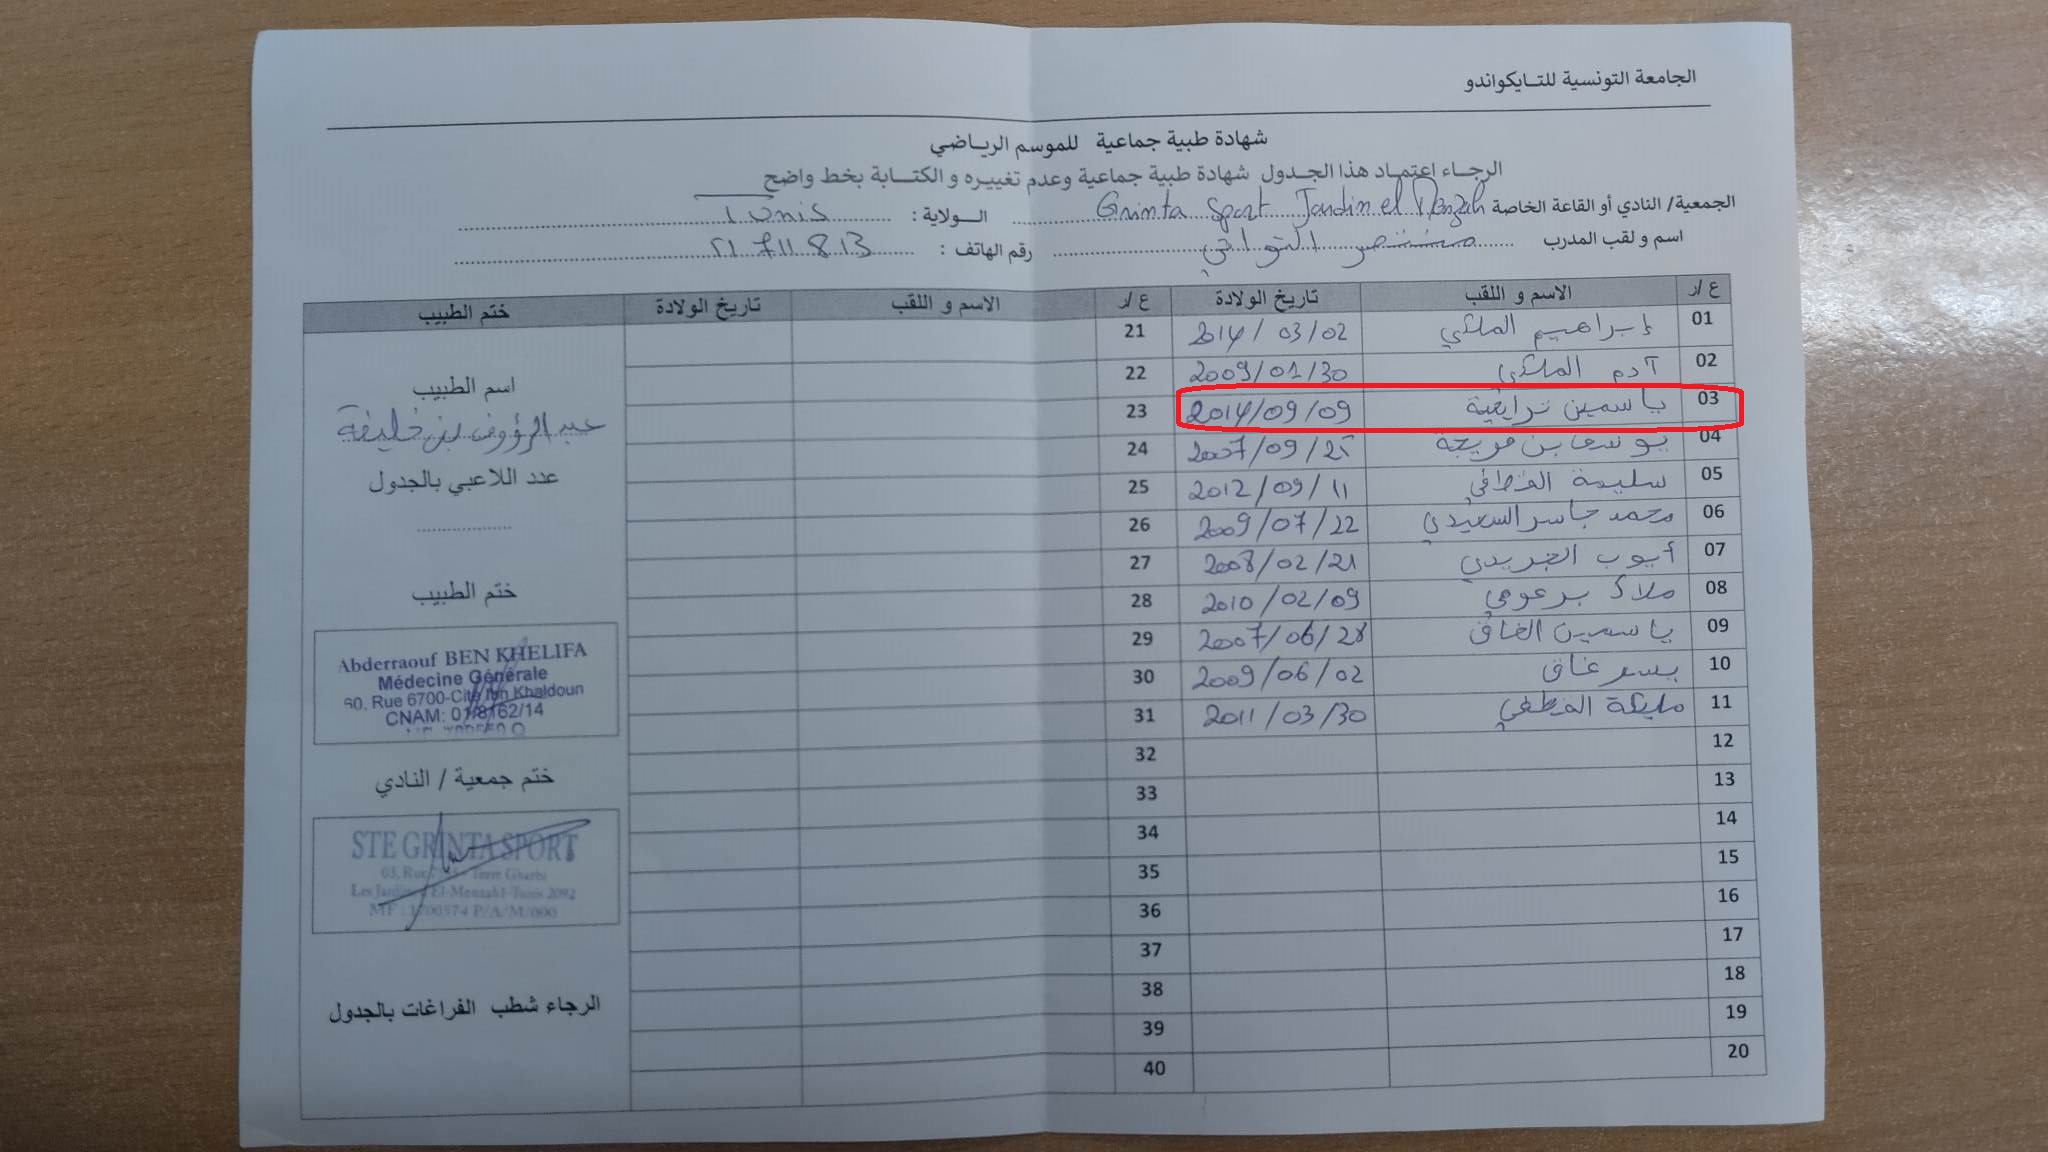 الجامعة التونسية للتايكواندو
شهادة طبية جماعية للموسم الرياضي
الرجاء اعتماد هذا الجدول شهادة طبية جماعية وعدم تغييره و الكتابة بخط واضح
الجمعية/ النادي أو القاعة الخاصة Grinta Sport Jardin el Menzah الولاية : Tunis
اسم و لقب المدرب منتصر التواتي رقم الهاتف : 21 711 813
ع /ر الاسم و اللقب تاريخ الولادة ع /ر الاسم و اللقب تاريخ الولادة ختم الطبيب
01 إبراهيم المكي 2014/03/02 21
02 آدم المكي 2009/01/30 22
03 ياسمين ترايعية 2014/09/09 23
04 يوسف بن فريجة 2007/09/25 24
05 سليمة القطفي 2012/09/11 25
06 محمد جاسر السعيدي 2009/07/22 26
07 أيوب الجريدي 2008/02/21 27
08 ملاك برعومي 2010/02/09 28
09 ياسمين الغاق 2007/06/28 29
10 يسر غاق 2009/06/02 30
11 مليكة القطفي 2011/03/30 31
12 32
13 33
14 34
15 35
16 36
17 37
18 38
19 39
20 40
اسم الطبيب
عبد الرؤوف بن خليفة
عدد اللاعبي بالجدول
ختم الطبيب
Abderraouf BEN KHELIFA
Médecine Générale
60, Rue 6700-Cité Ibn Khaldoun
CNAM: 01/8162/14
ختم جمعية / النادي
STE GRINTA SPORT
03, Rue Terre Gharbi
Les Jardins El-Menzah1-Tunis 2092
MF : 1700574 P/A/M/000
الرجاء شطب الفراغات بالجدول